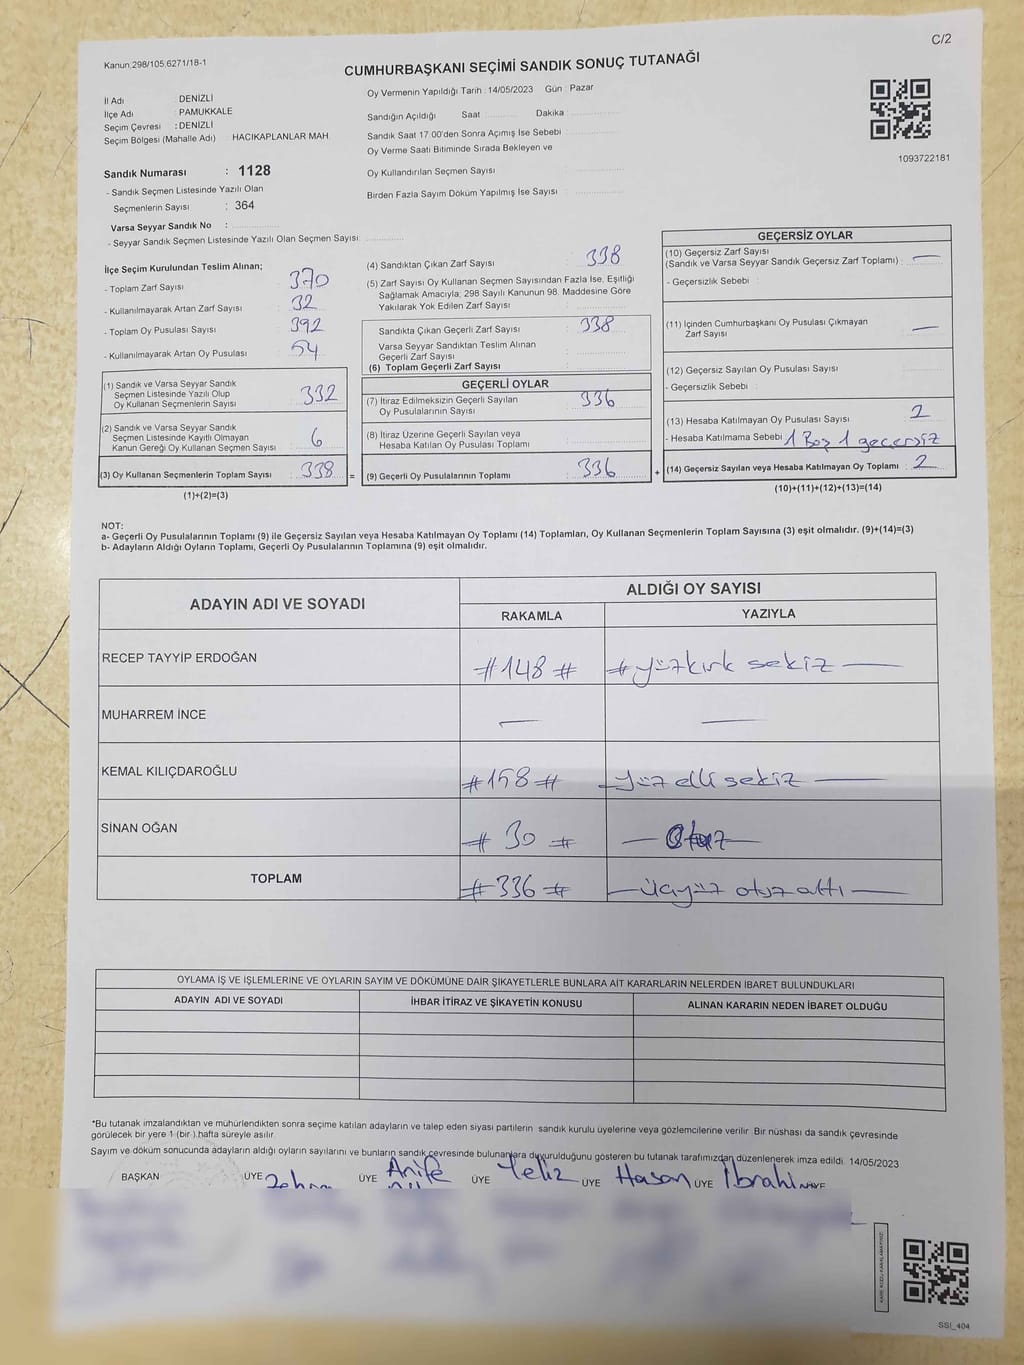 C/2
Kanun:298/105;6271/18-1
CUMHURBAŞKANI SEÇİMİ SANDIK SONUÇ TUTANAĞI
İl Adı : DENİZLİ
İlçe Adı : PAMUKKALE
Seçim Çevresi : DENİZLİ
Seçim Bölgesi (Mahalle Adı) HACIKAPLANLAR MAH.
Sandık Numarası : 1128
- Sandık Seçmen Listesinde Yazılı Olan
Seçmenlerin Sayısı : 364
Varsa Seyyar Sandık No :
- Seyyar Sandık Seçmen Listesinde Yazılı Olan Seçmen Sayısı:
Oy Vermenin Yapıldığı Tarih : 14/05/2023 Gün : Pazar
Sandığın Açıldığı Saat Dakika
Sandık Saat 17:00'den Sonra Açımış İse Sebebi
Oy Verme Saati Bitiminde Sırada Bekleyen ve
Oy Kullandırılan Seçmen Sayısı
Birden Fazla Sayım Döküm Yapılmış İse Sayısı
1093722181
İlçe Seçim Kurulundan Teslim Alınan;
- Toplam Zarf Sayısı 370
- Kullanılmayarak Artan Zarf Sayısı 32
- Toplam Oy Pusulası Sayısı 392
- Kullanılmayarak Artan Oy Pusulası 54
(1) Sandık ve Varsa Seyyar Sandık
Seçmen Listesinde Yazılı Olup
Oy Kullanan Seçmenlerin Sayısı 332
(2) Sandık ve Varsa Seyyar Sandık
Seçmen Listesinde Kayıtlı Olmayan
Kanun Gereği Oy Kullanan Seçmen Sayısı 6
(3) Oy Kullanan Seçmenlerin Toplam Sayısı : 338 =
(1)+(2)=(3)
(4) Sandıktan Çıkan Zarf Sayısı 338
(5) Zarf Sayısı Oy Kullanan Seçmen Sayısından Fazla İse, Eşitliği
Sağlamak Amacıyla; 298 Sayılı Kanunun 98. Maddesine Göre
Yakılarak Yok Edilen Zarf Sayısı
Sandıkta Çıkan Geçerli Zarf Sayısı 338
Varsa Seyyar Sandıktan Teslim Alınan
Geçerli Zarf Sayısı
(6) Toplam Geçerli Zarf Sayısı
GEÇERLİ OYLAR
(7) İtiraz Edilmeksizin Geçerli Sayılan
Oy Pusulalarının Sayısı 336
(8) İtiraz Üzerine Geçerli Sayılan veya
Hesaba Katılan Oy Pusulası Toplamı
(9) Geçerli Oy Pusulalarının Toplamı : 336 +
GEÇERSİZ OYLAR
(10) Geçersiz Zarf Sayısı
(Sandık ve Varsa Seyyar Sandık Geçersiz Zarf Toplamı) : —
- Geçersizlik Sebebi
(11) İçinden Cumhurbaşkanı Oy Pusulası Çıkmayan
Zarf Sayısı —
(12) Geçersiz Sayılan Oy Pusulası Sayısı
- Geçersizlik Sebebi :
(13) Hesaba Katılmayan Oy Pusulası Sayısı 2
- Hesaba Katılmama Sebebi : 1 Boş 1 geçersiz
(14) Geçersiz Sayılan veya Hesaba Katılmayan Oy Toplamı : 2
(10)+(11)+(12)+(13)=(14)
NOT:
a- Geçerli Oy Pusulalarının Toplamı (9) ile Geçersiz Sayılan veya Hesaba Katılmayan Oy Toplamı (14) Toplamları, Oy Kullanan Seçmenlerin Toplam Sayısına (3) eşit olmalıdır. (9)+(14)=(3)
b- Adayların Aldığı Oyların Toplamı, Geçerli Oy Pusulalarının Toplamına (9) eşit olmalıdır.
ADAYIN ADI VE SOYADI ALDIĞI OY SAYISI
RAKAMLA YAZIYLA
RECEP TAYYİP ERDOĞAN #148# #yüzkırk sekiz —
MUHARREM İNCE — —
KEMAL KILIÇDAROĞLU #158# —yüz elli sekiz —
SİNAN OĞAN # 30 # — Otuz —
TOPLAM #336# — üçyüz otuz altı —
OYLAMA İŞ VE İŞLEMLERİNE VE OYLARIN SAYIM VE DÖKÜMÜNE DAİR ŞİKAYETLERLE BUNLARA AİT KARARLARIN NELERDEN İBARET BULUNDUKLARI
ADAYIN ADI VE SOYADI İHBAR İTİRAZ VE ŞİKAYETİN KONUSU ALINAN KARARIN NEDEN İBARET OLDUĞU
*Bu tutanak imzalandıktan ve mühürlendikten sonra seçime katılan adayların ve talep eden siyasi partilerin sandık kurulu üyelerine veya gözlemcilerine verilir. Bir nüshası da sandık çevresinde
görülecek bir yere 1 (bir ) hafta süreyle asılır.
Sayım ve döküm sonucunda adayların aldığı oyların sayılarını ve bunların sandık çevresinde bulunanlara duyurulduğunu gösteren bu tutanak tarafımızdan düzenlenerek imza edildi. 14/05/2023
BAŞKAN ÜYE ÜYE Arife ÜYE Yeliz ÜYE Hasan ÜYE İbrahi ÜYE
KARE KODU KARALAMAYINIZ
SSI_404